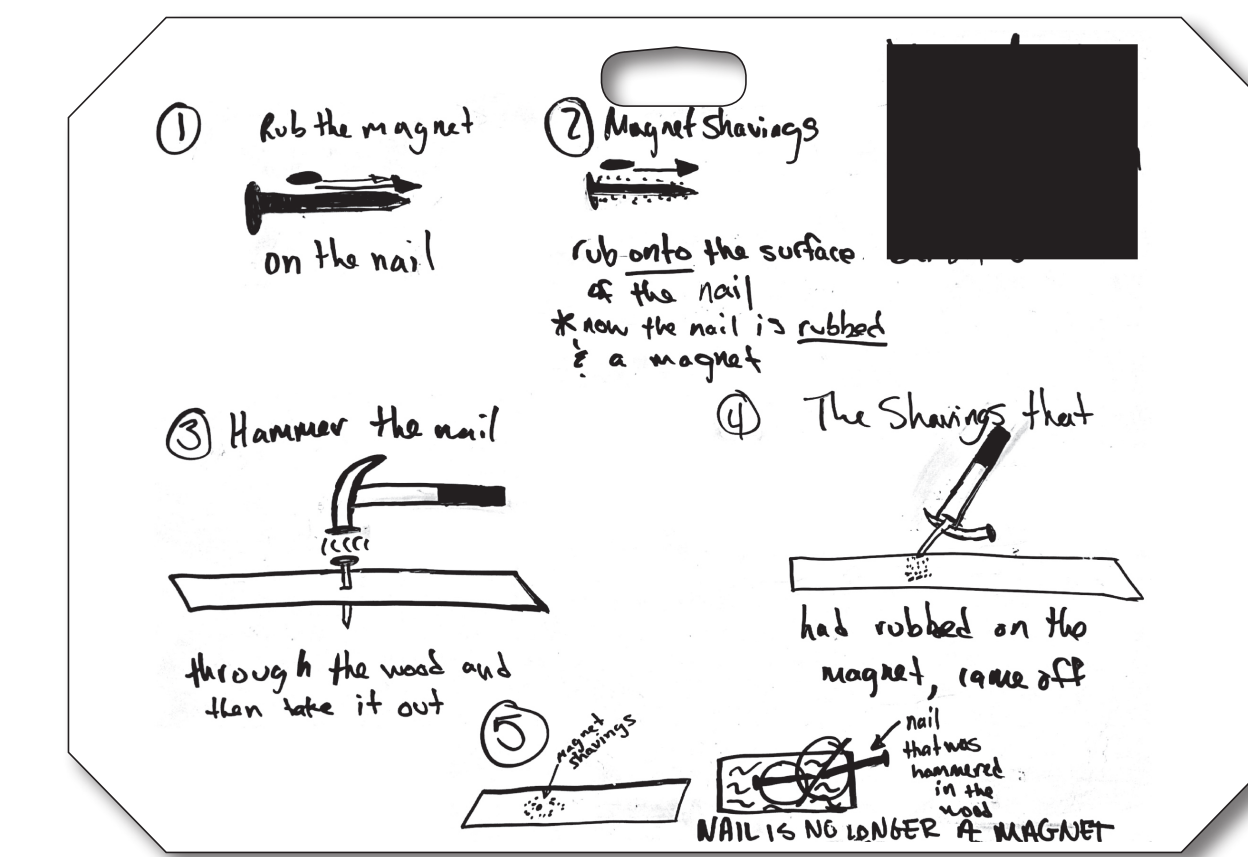 ① Rub the magnet
on the nail
② Magnet Shavings
rub onto the surface
of the nail
* now the nail is rubbed
& a magnet
③ Hammer the nail
through the wood and
then take it out
④ The Shavings that
had rubbed on the
magnet, came off
⑤
magnet
shavings
nail
that was
hammered
in the
wood
NAIL IS NO LONGER A MAGNET